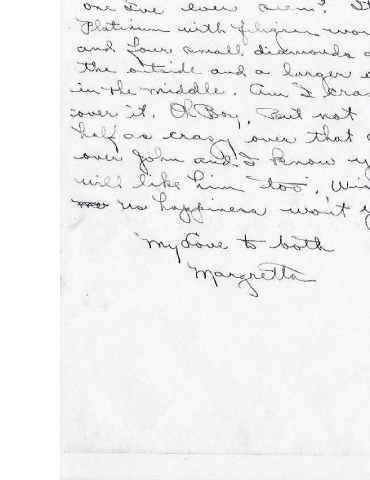 one I've ever seen? It
Platinum with filigree wor
and four small diamonds o
the outside and a larger o
in the middle. Am I craz
over it. Oh Boy. But not
half as crazy over that a
over John and I know y
will like him too. Wis
us happiness won't y
My Love to both
Margretta